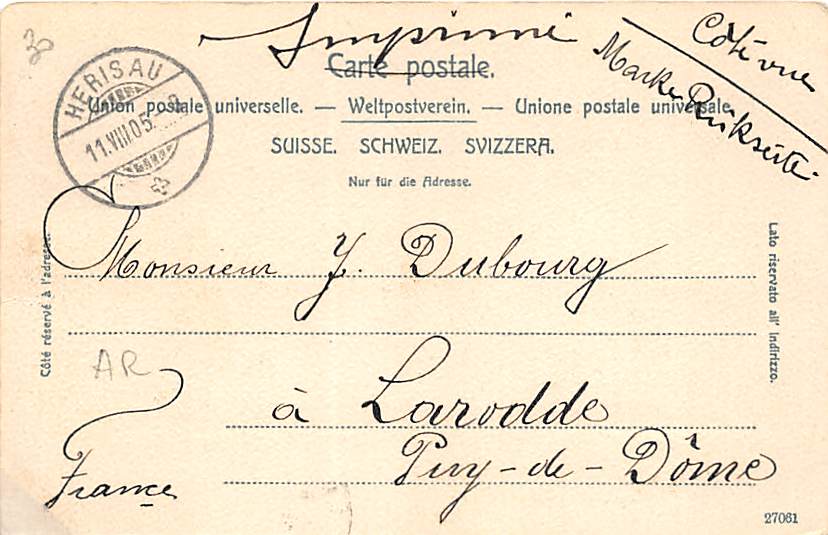 30
Imprimé
Côté vue
Marke Rükseite
Carte postale.
Union postale universelle. — Weltpostverein. — Unione postale universale.
SUISSE. SCHWEIZ. SVIZZERA.
Nur für die Adresse.
HERISAU
11.VIII.05
Côté réservé à l'adresse.
Lato riservato all' indirizzo.
Monsieur J. Dubourg
AR
à Larodde
Puy-de-Dôme
France
27061